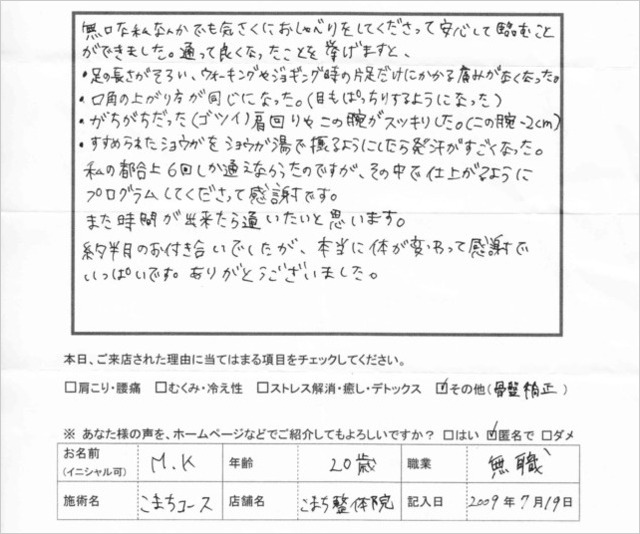 無口な私なんかでも気さくにおしゃべりをしてくださって安心して臨むこと
ができました。通って良くなったことを挙げますと、
・足の長さがそろい、ウォーキングやジョギング時の片足だけにかかる痛みがなくなった。
・口角の上がり方が同じになった。(目もぱっちりするようになった)
・がちがちだった(ゴツイ)肩回りやこの腕がスッキリした。(この腕-2cm)
・すすめられたショウガをショウガ湯で摂るようにしたら発汗がすごくなった。
私の都合上6回しか通えなかったのですが、その中で仕上がるように
プログラムしてくださって感謝です。
また時間が出来たら通いたいと思います。
約半月のお付き合いでしたが、本当に体が変わって感謝で
いっぱいです。ありがとうございました。
本日、ご来店された理由に当てはまる項目をチェックしてください。
□肩こり・腰痛 □むくみ・冷え性 □ストレス解消・癒し・デトックス ☑その他(骨盤矯正)
※ あなた様の声を、ホームページなどでご紹介してもよろしいですか? □はい ☑匿名で □ダメ
お名前 (イニシャル可) M.K 年齢 20歳 職業 無職
施術名 こまちコース 店舗名 こまち整体院 記入日 2009年7月19日